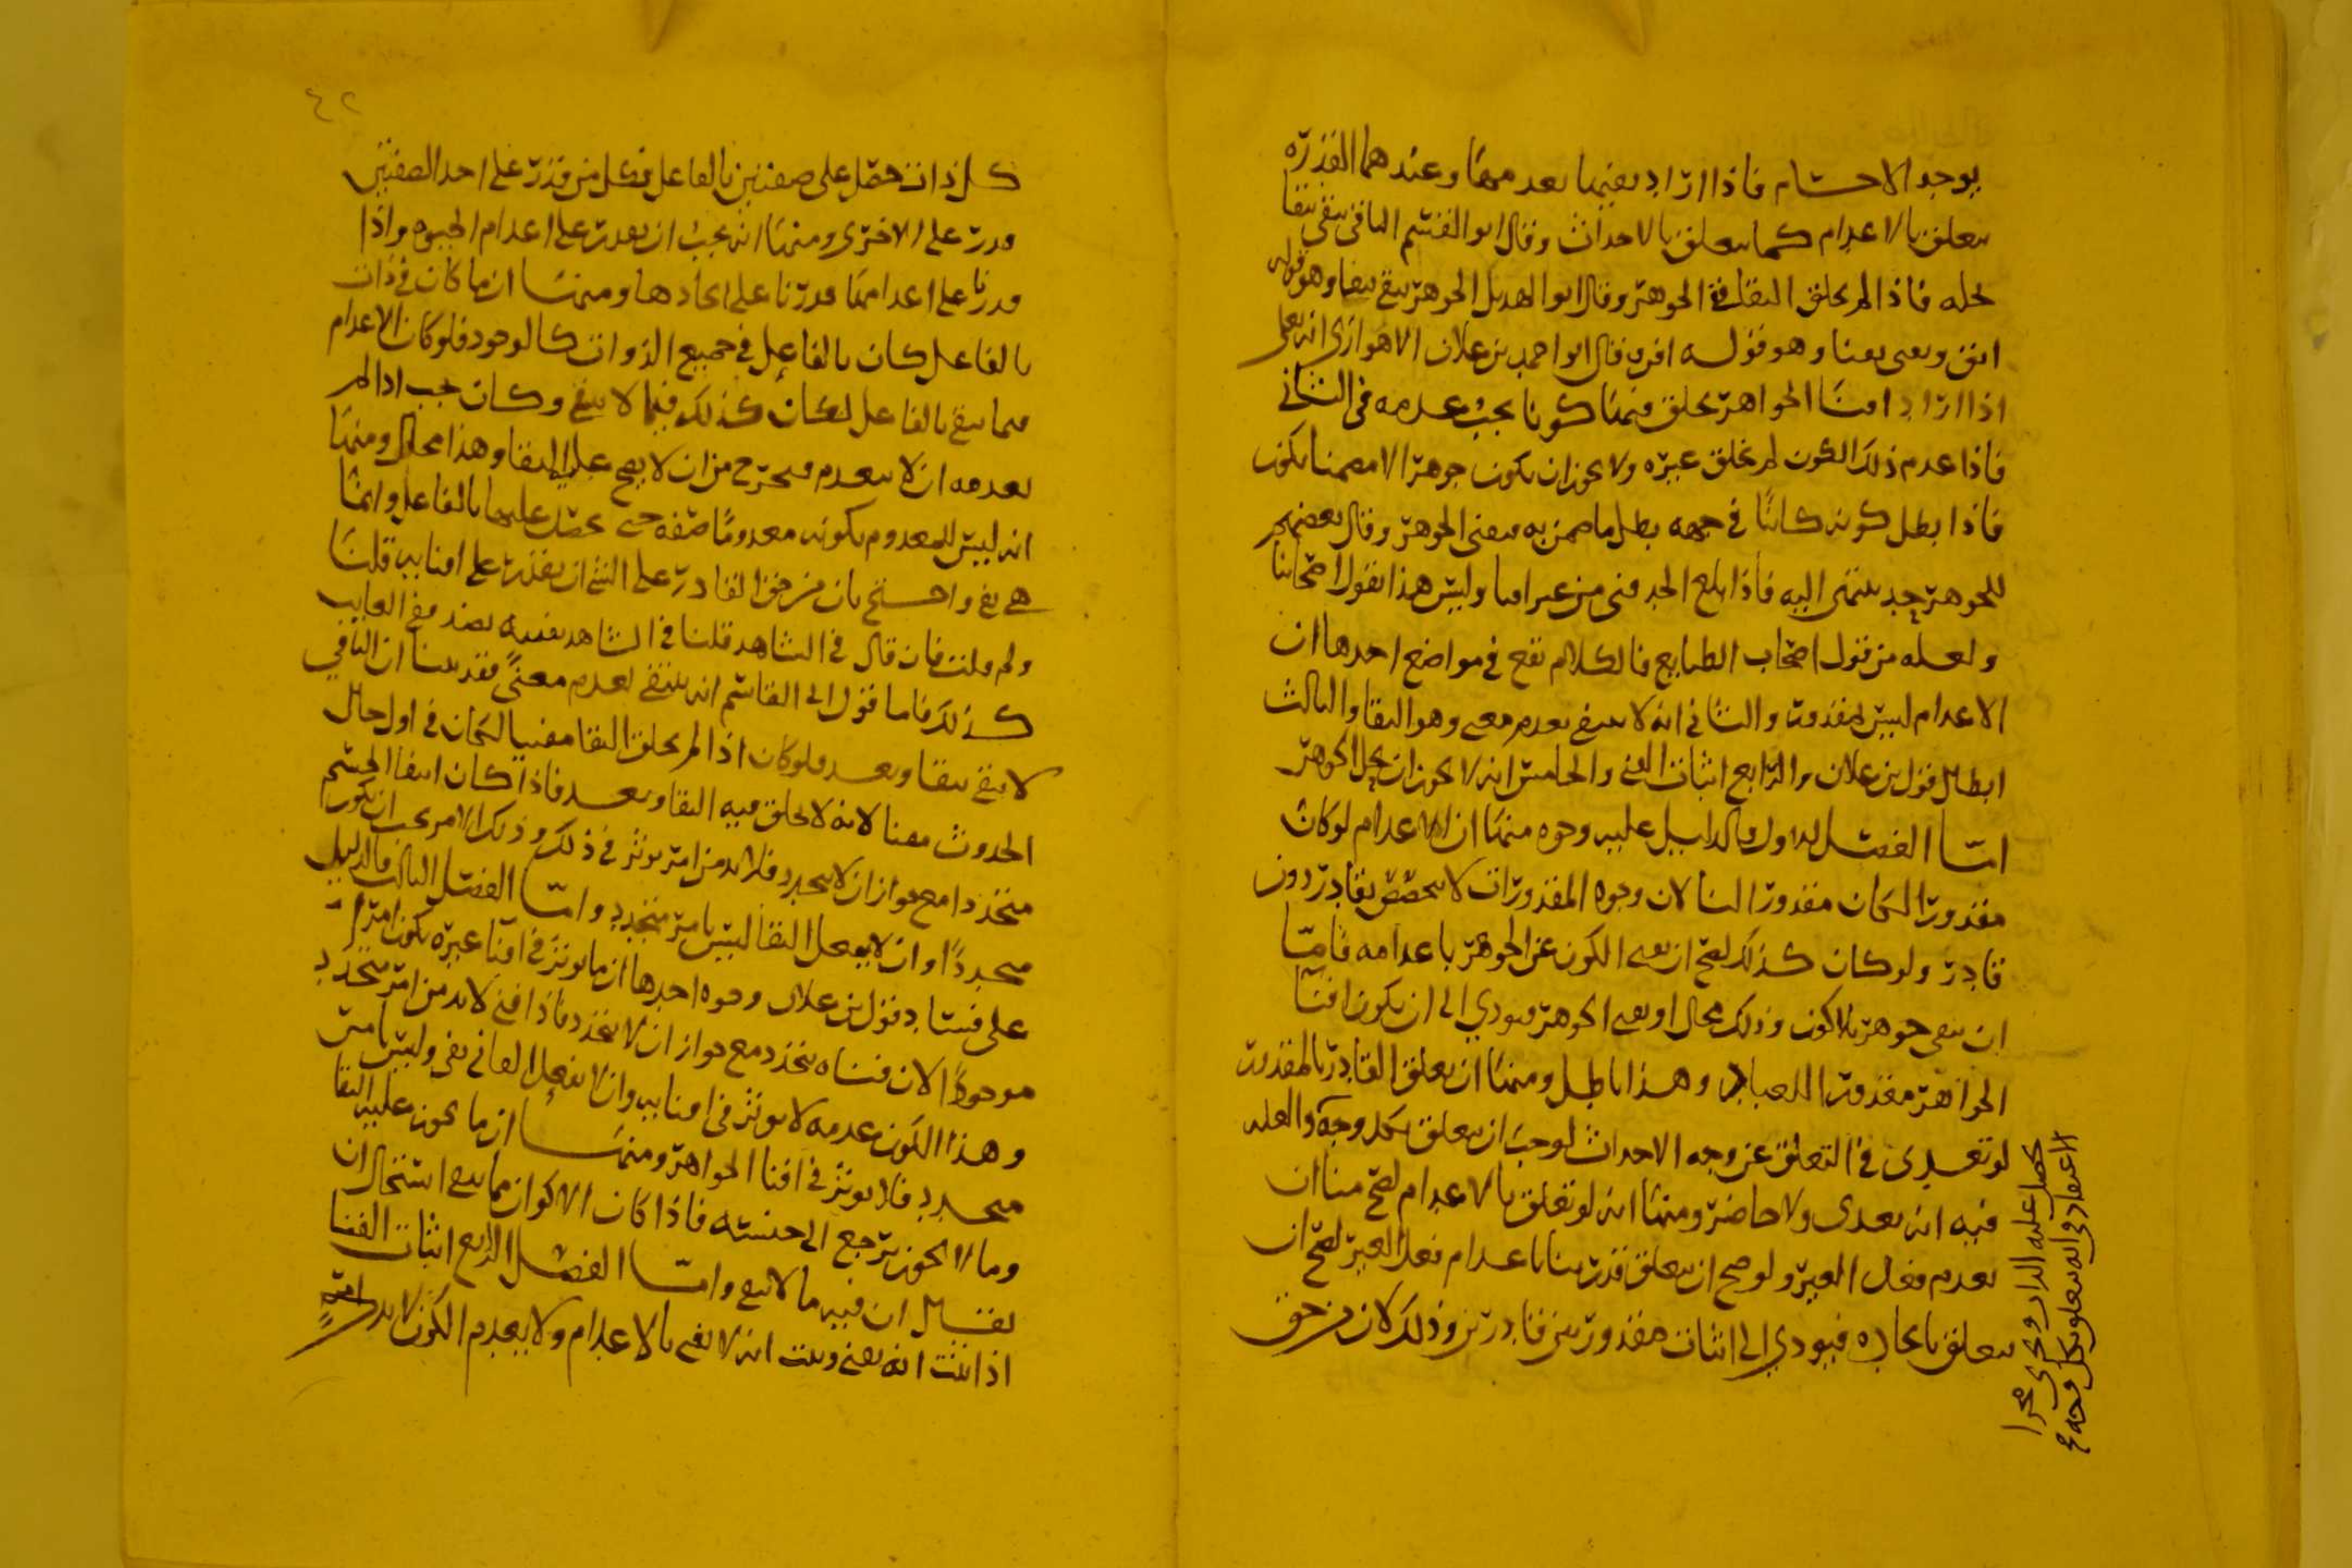 يوجد الاجسام فاذا اراد يفنيها يعدمها وعندهما القدره
يتعلق بالاعدام كما يتعلق بالاحداث وقال ابو القسم الباقي يبقى ببقا
يحله فاذا لم يخلق البقا في الجوهر وقال ابو الهديل الجوهر يبقى ببقا وهو قوله
ابق ويفنى بفنا وهو قوله افن وقال ابو احمد بن علان الاهوازي انه تعلى
اذا اراد افنا الجواهر يخلق فيها كونا يجب عدمه في الثاني
فاذا عدم ذلك الكون لم يخلق غيره ولا يجوز ان يكون جوهرا الا مضمنا بكون
فاذا بطل كونه كائنا في جهه بطل ما ضمن به ففنى الجوهر وقال بعضهم
للجوهر حد ينتهى اليه فاذا بلغ الحد فنى من غير افنا وليس هذا بقول اصحابنا
ولعله من قول اصحاب الطبايع فالكلام يقع في مواضع احدها ان
الاعدام ليس بمقدور والثاني انه لا ينتفى بعدم معنى وهو البقا والثالث
ابطال قول بن علان والرابع اثبات الفنى والخامس انه لا يجوز ان يحل الجوهر
امّا الفصل الاول فالدليل عليه وجوه منها ان الاعدام لو كان
مقدورا لكان مقدورا لنا لان وجوه المقدورات لا يتخصص بقادر دون
قادر ولو كان كذلك لصح ان نفنى الكون عن الجوهر باعدامه فامّا
ان يبقى جوهر بلا كون وذلك محال او يفنى الجوهر فيودي الى ان يكون افنا
الجواهر مقدورا للعباد وهذا باطل ومنها ان تعلق القادر بالمقدور
لو تعدى في التعلق عن وجه الاحداث لوجب ان يتعلق بكل وجه والعله
فيه انه تعدى ولا حاضر ومنها انه لو تعلق بالاعدام لصح منا ان
نعدم فعل الغير ولو صح ان يتعلق قدرتنا باعدام فعل الغير لصح ان
يتعلق بايجاده فيودي الى اثبات مقدور بين قادرين وذلك لان من حق
يحصل عليه الذات وجرى مجرا
الاعتقاد في انه يتعلق بكل وجه
٤٢
كل ذات حصل على صفتين بالفاعل فكل من قدر على احد الصفتين
قدر على الاخرى ومنها انه يجب ان يقدر على اعدام الحيوه واذا
قدرنا على اعدامها قدرنا على ايجادها ومنها ان ما كان في ذات
بالفاعل كان بالفاعل في جميع الذوات كالوجود فلو كان الاعدام
فيما يبقى بالفاعل لكان كذلك فيما لا يبقى وكان يجب اذا لم
يعدمه ان لا ينعدم فيخرج من ان لا يصح عليه البقا وهذا محال ومنها
انه ليس للمعدوم بكونه معدوما صفه حتى يحصل عليها بالفاعل وانما
هي نفي واحتج بان من حق القادر على الشي ان يقدر على افنايه قلنا
ولم قلت فان قال في الشاهد قلنا في الشاهد يفنيه بضد ففي الغايب
كذلك فاما قول ابي القاسم انه ينتفي لعدم معنى فقد بينا ان الباقي
لا يبقى ببقا وبعد فلو كان اذا لم يخلق البقا مفنيا لكان في اول حال
الحدوث مفنا لانه لا يخلق فيه البقا وبعد فاذا كان انتفا الجسم
متجددا مع جواز ان لا يتجدد فلا بد من امر يوثر في ذلك وذلك الامر يجب ان يكون
متجددا وان لا يفعل البقا ليس بامر متجدد وامّا الفصل الثالث فالدليل
على فساد قول بن علان وجوه احدها ان ما يوثر في افنا غيره يكون امرا
موجودا لان فناه يتجدد مع جواز ان لا يتجدد فاذا فني لا بد من امر يتجدد
وهذا الكون عدمه لا يوثر في افنايه وان لا يفعل الفاني نفي وليس بامر
متجدد فلا يوثر في افنا الجواهر ومنها ان ما يجوز عليه البقا
وما لا يجوز يرجع الى جنسه فاذا كان الاكوان مما يبقى استحال ان
يقال ان فيه ما لا يبقى وامّا الفصل الرابع اثبات الفنا
اذا ثبت انه يفنى وثبت انه لا يفنى بالاعدام ولا بعدم الكون لا بد من امر